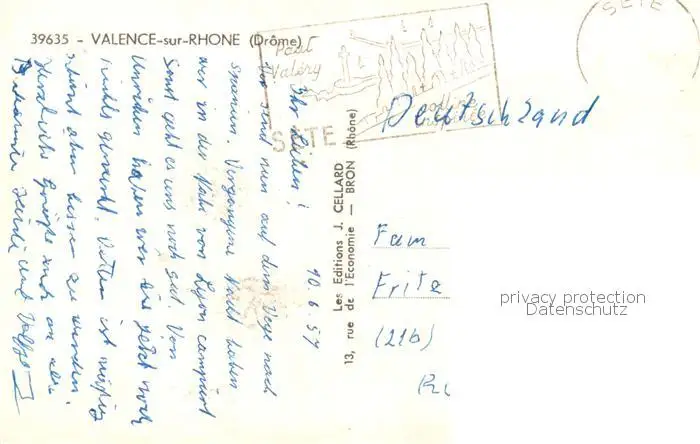 39635 - VALENCE-sur-RHONE (Drôme)
Paul
Valéry
SÈTE
SETE
10.6.57
Ihr Lieben!
Wir sind nun auf dem Wege nach
Spanien. Vergangene Nacht haben
wir in der Nähe von Lyon campiert
Sonst geht es uns noch gut. Von
Unruhen haben wir bis jetzt noch
nichts gemerkt. Wetter ist mäßig
scheint aber besser zu werden.
Herzliche Grüße auch an alle
Bekannten Heidi und Wolfg.
Les Editions J. CELLARD
13, rue de l'Economie — BRON (Rhône)
Deutschland
Fam
Fritz
(21b)
privacy protection
Datenschutz